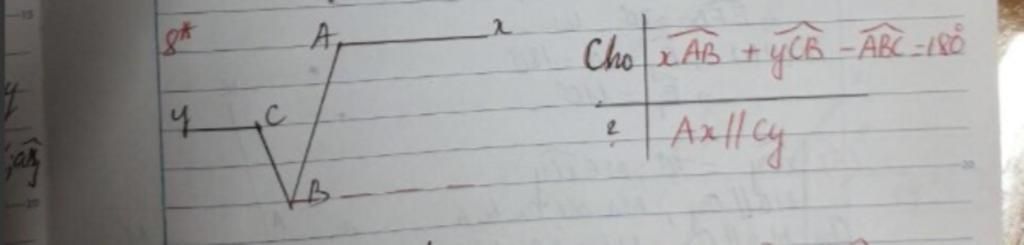 8*
A x
y C
B
Cho xAB + yCB - ABC = 180°
? Ax // Cy